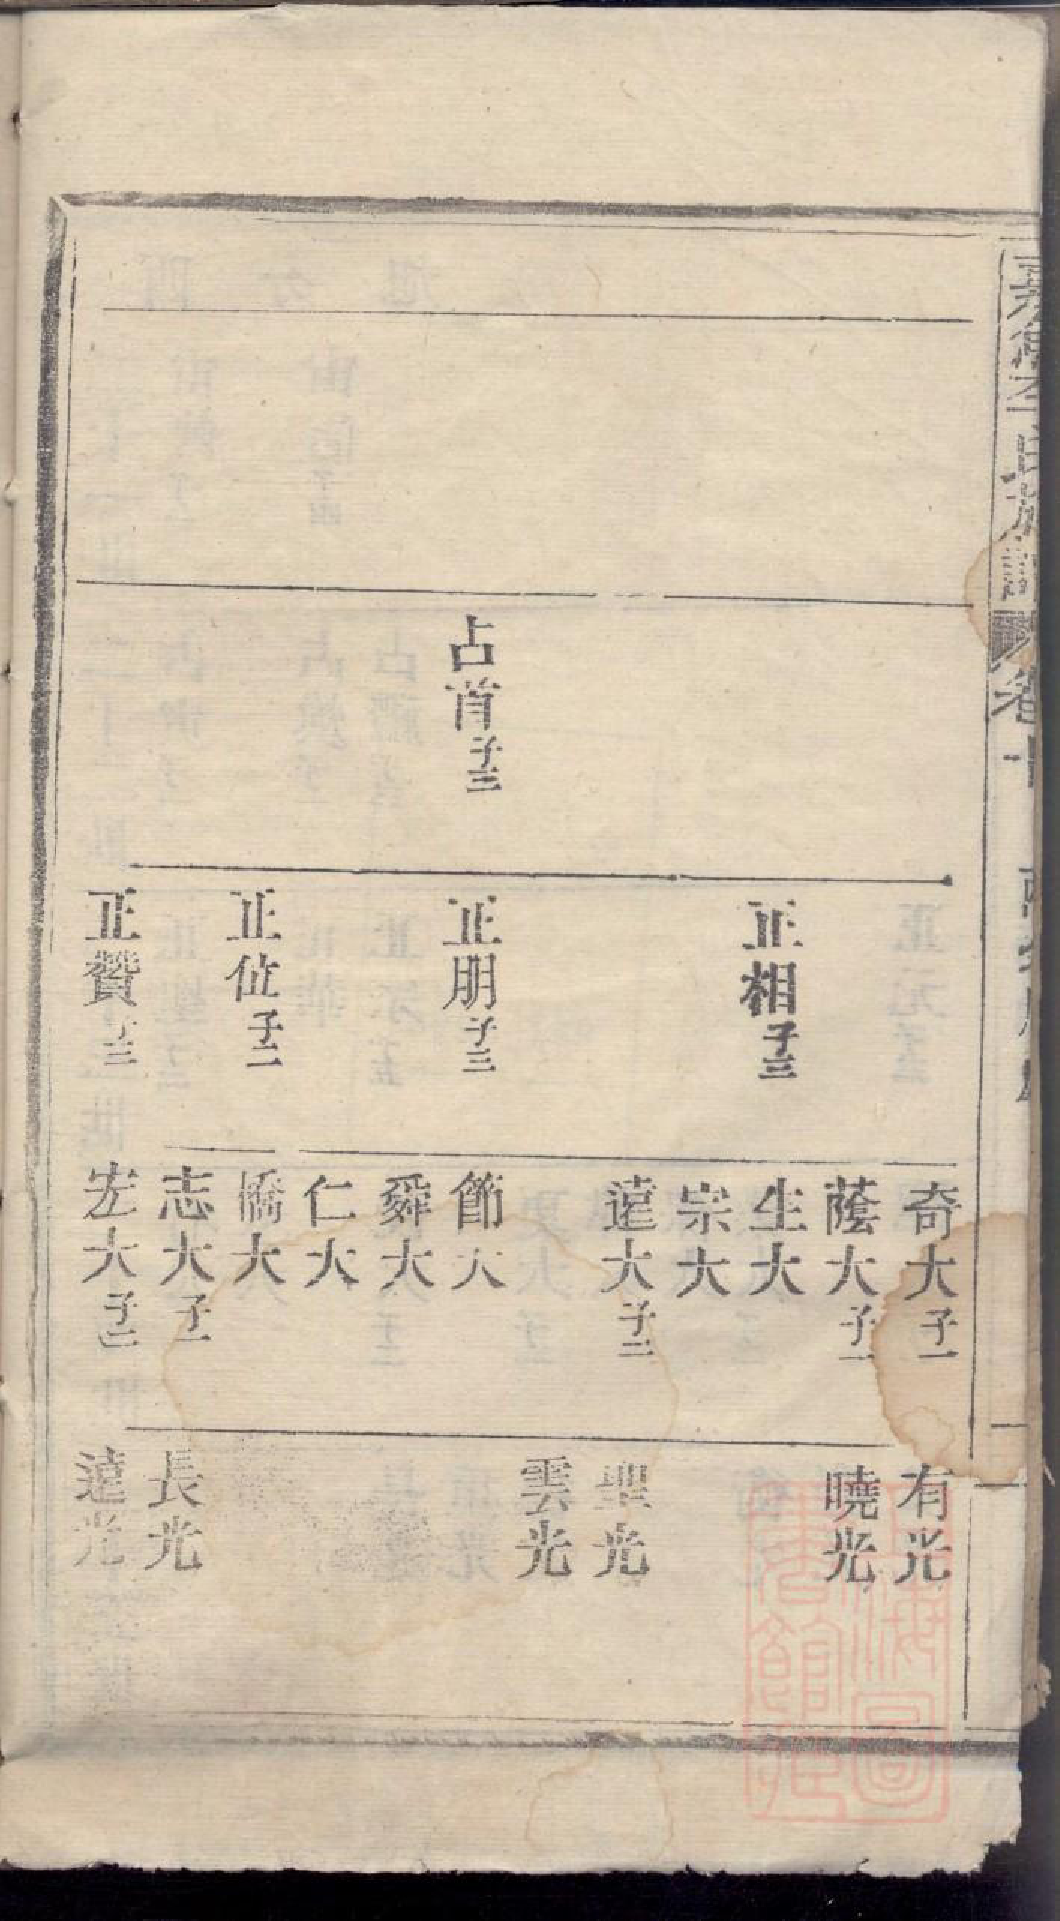 氏族譜
卷十
占首子三
正相子三
正朋子三
正位子二
正贊三
奇大子一
蔭大子一
生大
宗大
遠大子二
節大
舜大
仁大
僑大
志大子一
宏大子一
有光
曉光
聖光
雲光
長光
遠光